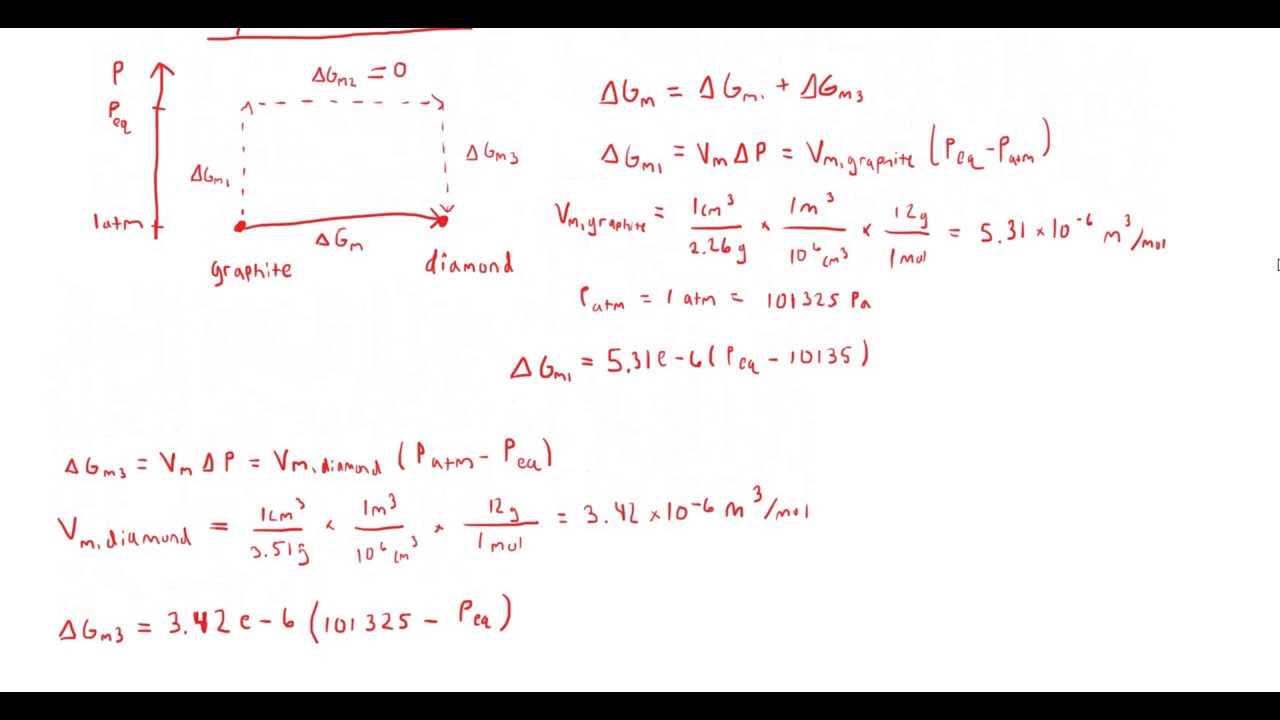 P
P_eq
1 atm
ΔG_m1
ΔG_m2 = 0
ΔG_m3
ΔG_m
graphite
diamond
ΔG_m = ΔG_m1 + ΔG_m3
ΔG_m1 = V_m ΔP = V_m,graphite (P_eq - P_atm)
V_m,graphite = 1cm³/2.26g × 1m³/10⁶cm³ × 12g/1mol = 5.31 × 10⁻⁶ m³/mol
P_atm = 1 atm = 101325 Pa
ΔG_m1 = 5.31e-6 (P_eq - 10135)
ΔG_m3 = V_m ΔP = V_m,diamond (P_atm - P_eq)
V_m,diamond = 1cm³/3.51g × 1m³/10⁶cm³ × 12g/1mol = 3.42 × 10⁻⁶ m³/mol
ΔG_m3 = 3.42e-6 (101325 - P_eq)